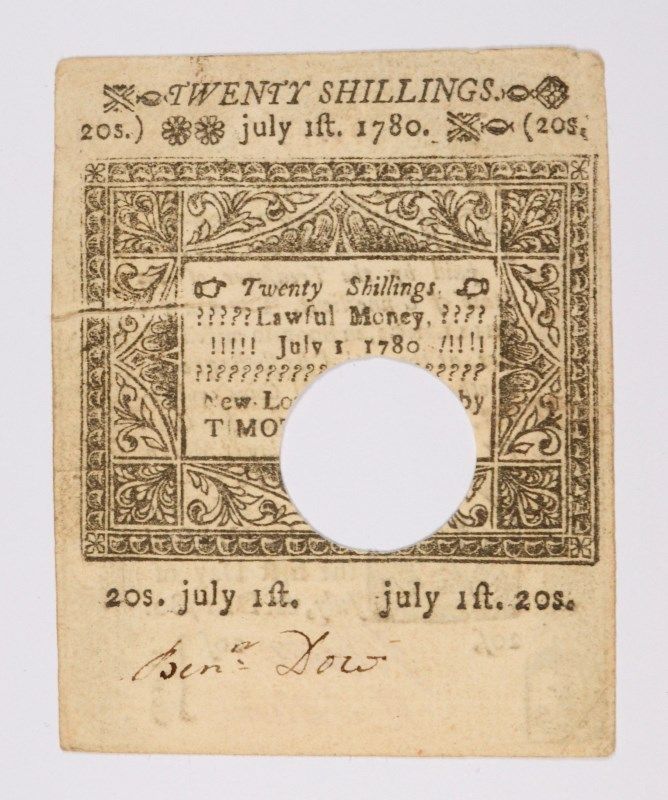 TWENTY SHILLINGS.
20s.) july 1ſt. 1780. (20s.
Twenty Shillings.
?????Lawful Money, ????
!!!!! July 1, 1780 !!!!!
????????????????????
New-Lo by
T MOT
20s. july 1ſt. july 1ſt. 20s.
Benª Dow